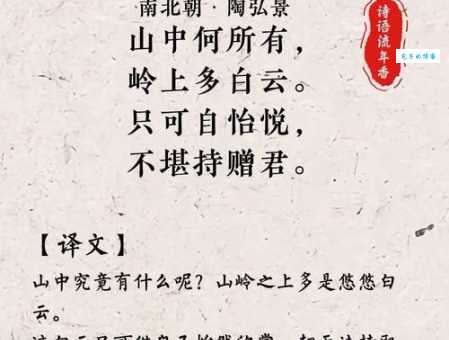 南北朝·陶弘景
山中何所有，
岭上多白云。
只可自怡悦，
不堪持赠君。
诗语流年香
【译文】
山中究竟有什么呢？山岭之上多是悠悠白
云。